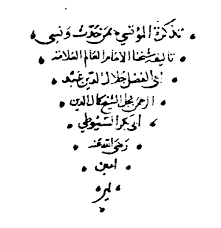 تذكرة المؤتسي بمن حدث ونسي
تاليف شيخنا الامام العالم العلامة
ابي الفضل جلال الدين عبد
الرحمن نجل الشيخ كمال الدين
ابي بكر السيوطي
رحمه الله
امين